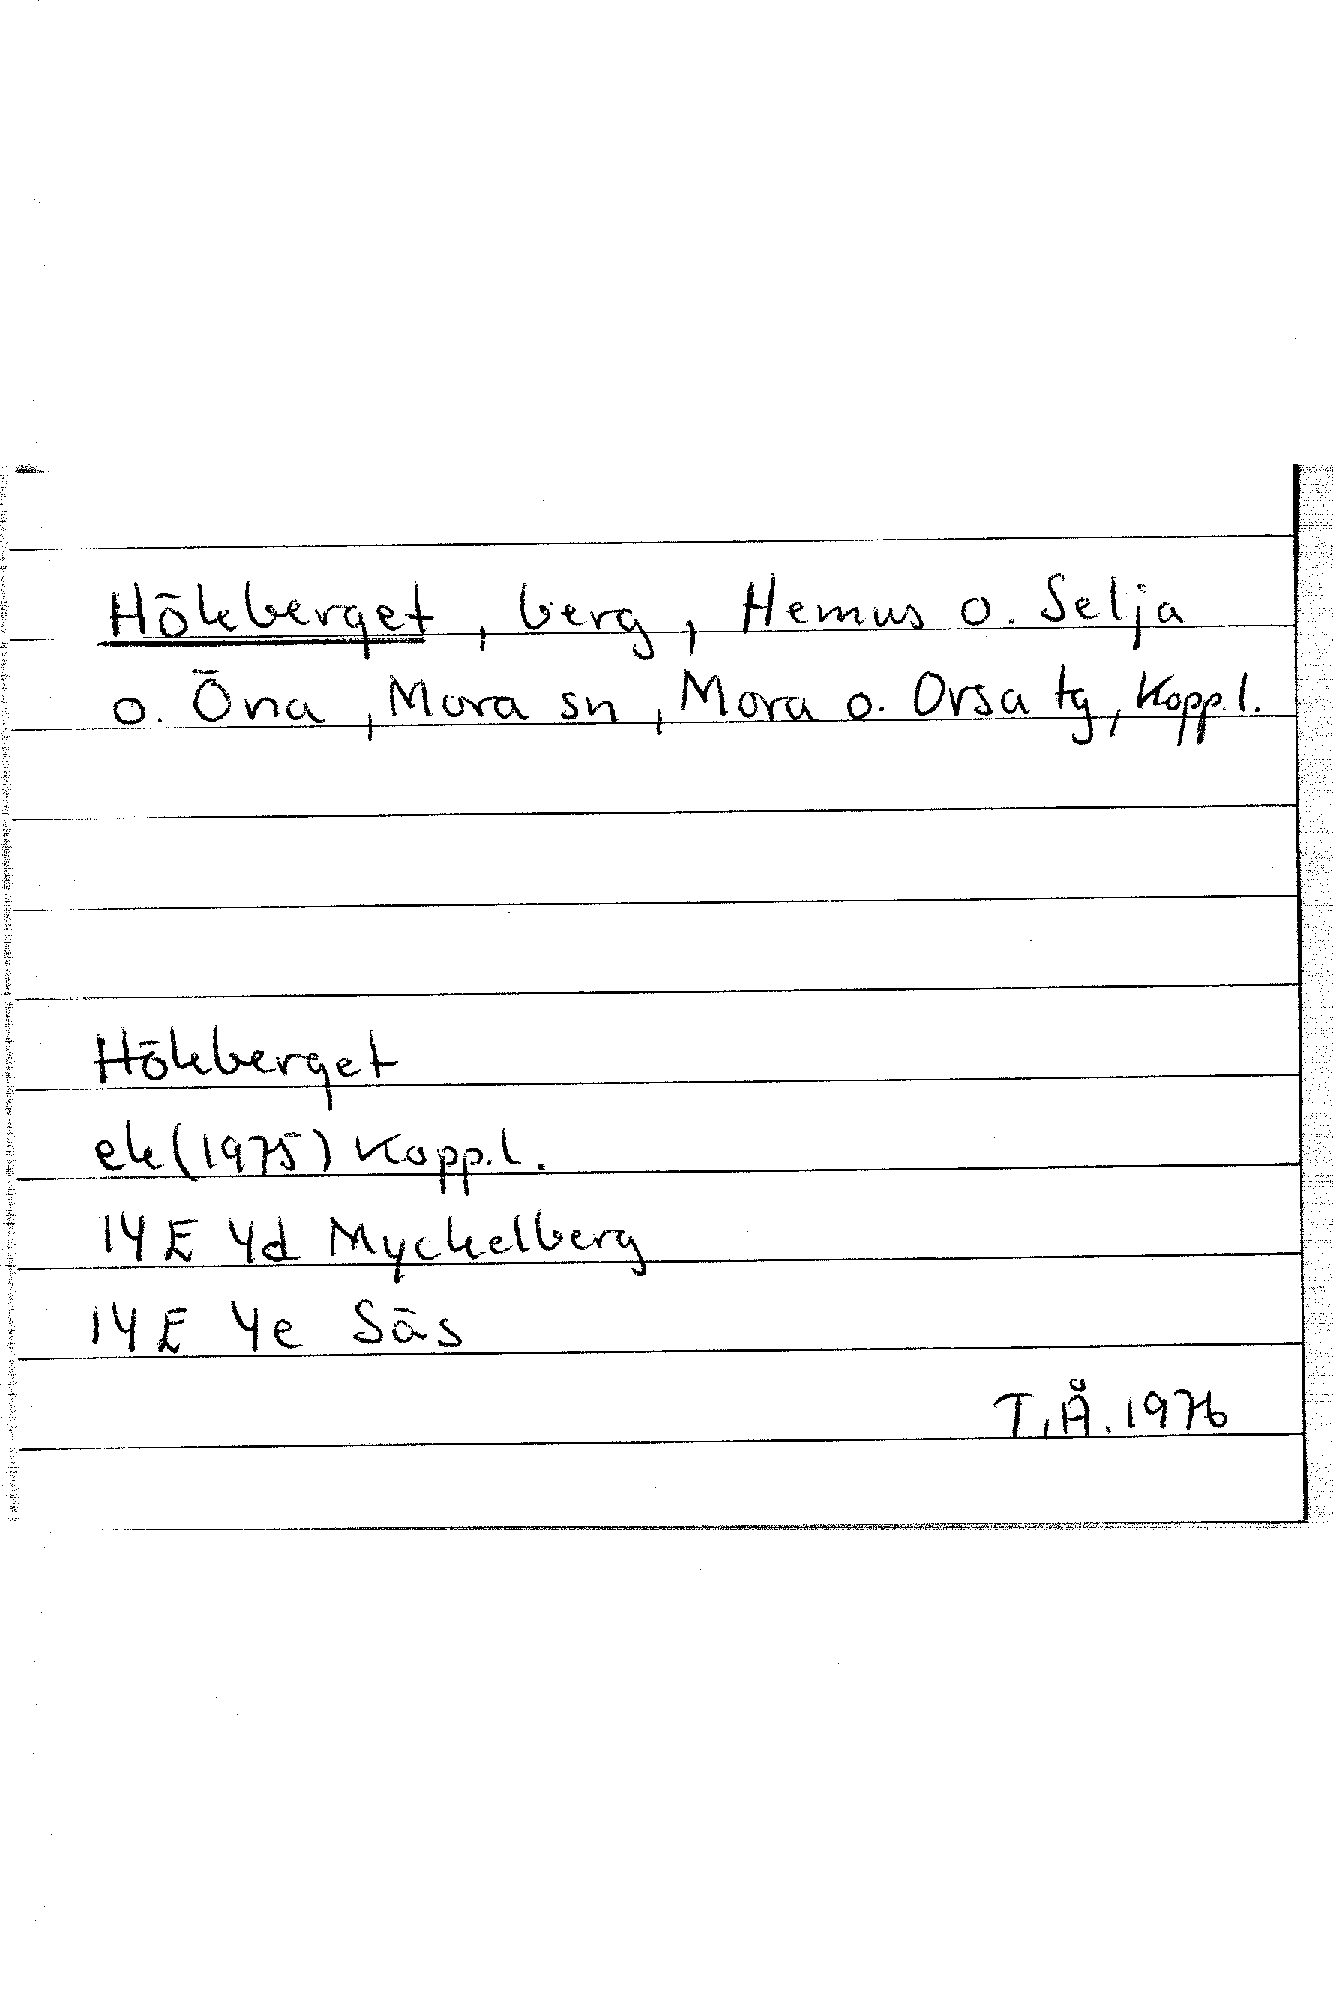 Hökberget, berg, Hemus o. Selja
o. Öna, Mora sn, Mora o. Orsa tg, Kopp.l.
Hökberget
ek (1975) Kopp.l.
14 E 4d Myckelberg
14 E 4e Säs
T.Å. 1976